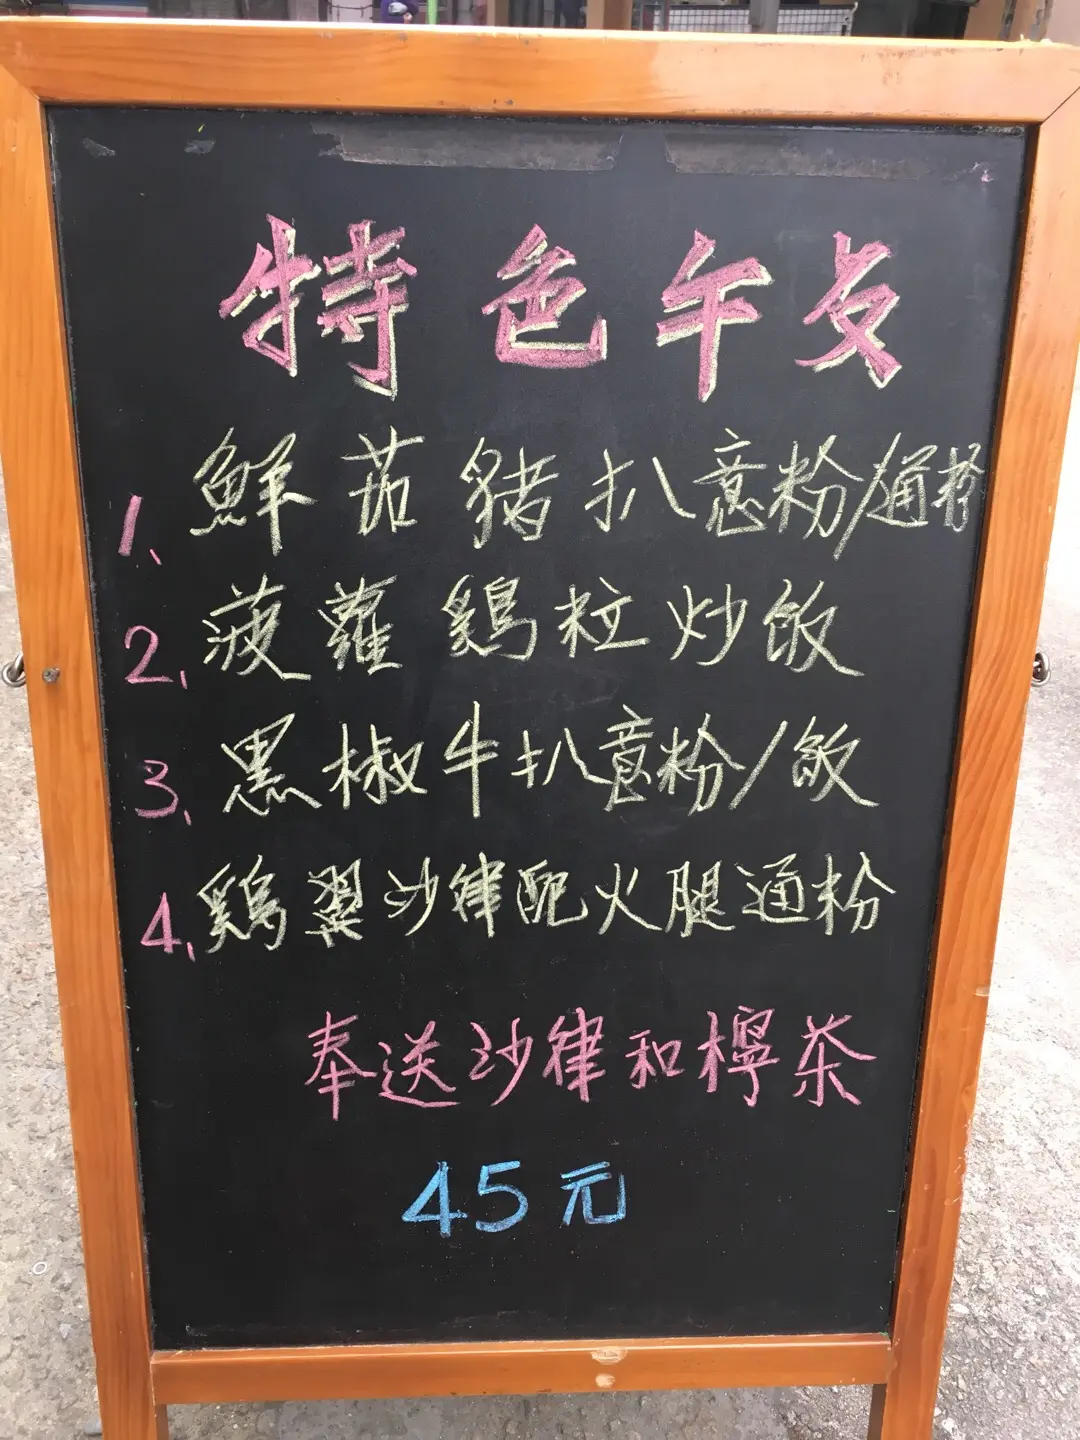 特色午歺
1. 鮮茄豬扒意粉/通粉
2. 菠蘿鷄粒炒飯
3. 黑椒牛扒意粉/飯
4. 鷄翼沙律配火腿通粉
奉送沙律和檸茶
45元